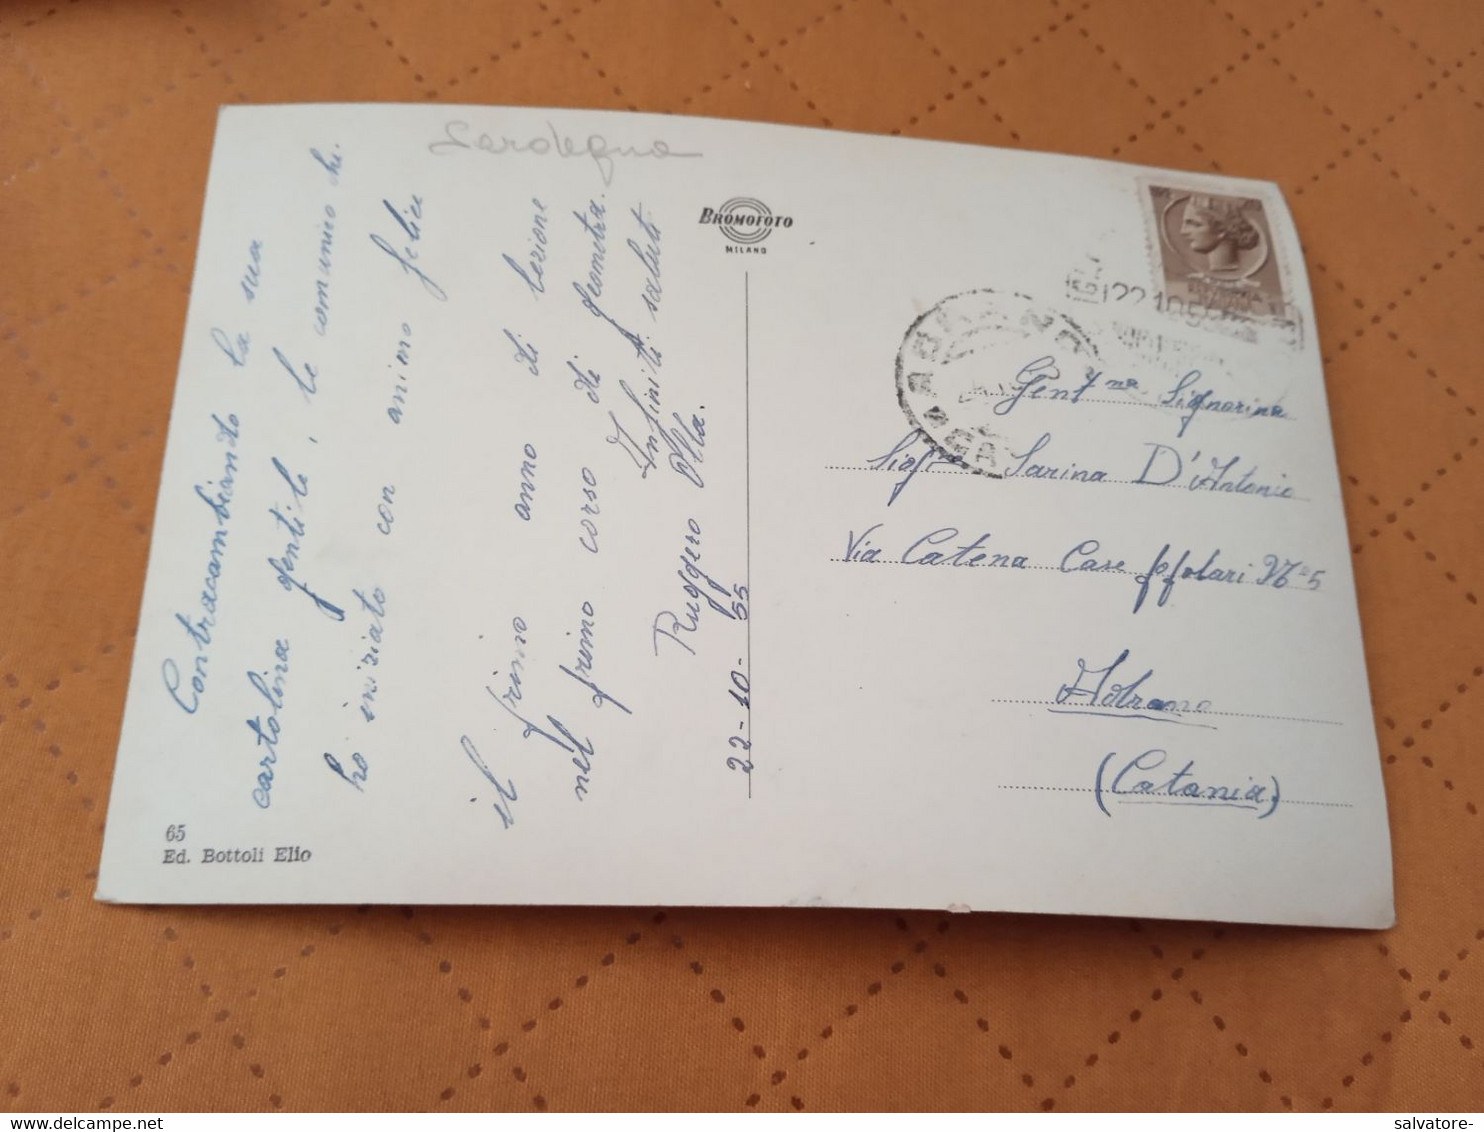 Sardegna
BROMOFOTO
MILANO
Contracambiando la sua
cartolina gentile, le comunico che.
ho iniziato con animo felice
il primo anno di lezione
nel primo corso di geometra.
Infiniti saluti
Ruggero Olla.
22-10-55
65
Ed. Bottoli Elio
22.10.5
ADRANO
Gent.ma Signorina
Sig.na Sarina D'Antonio
Via Catena Case ppolari N°5
Adrano
(Catania)
salvatore-